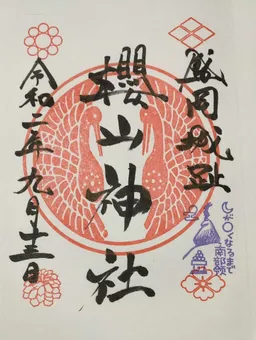 盛岡城趾
櫻山神社
令和二年九月十三日
月が〇くなるまで
南部領